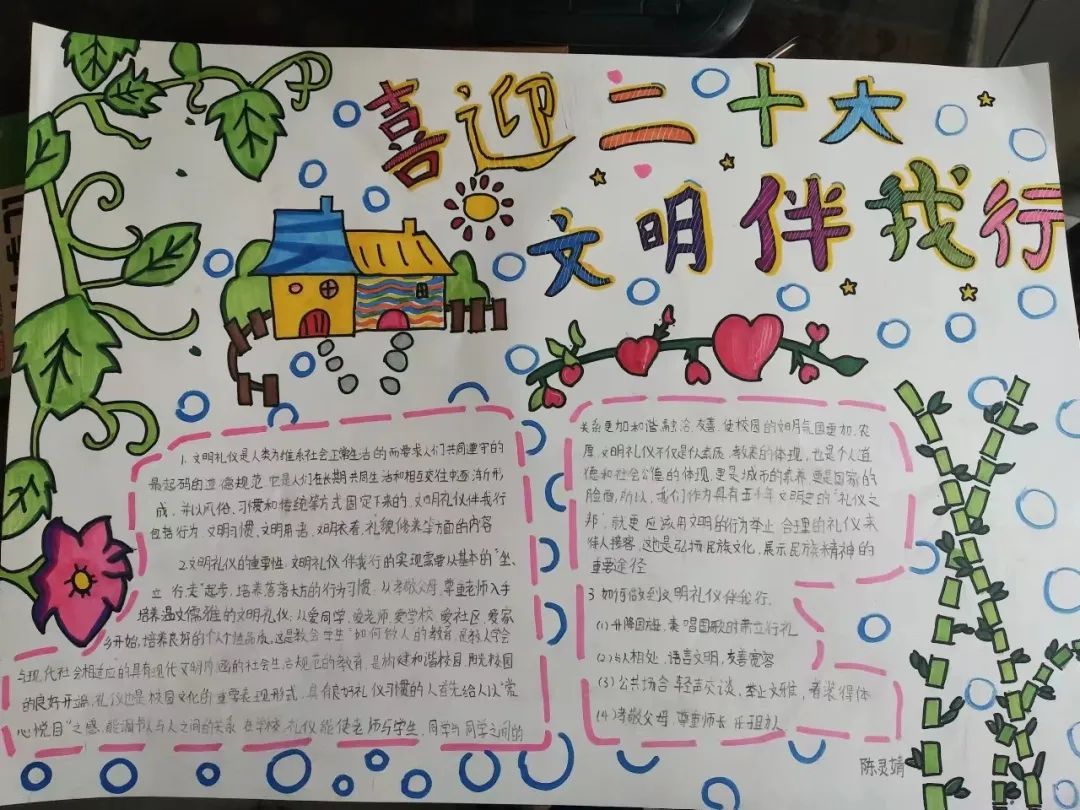 喜迎二十大
文明伴我行
1. 文明礼仪是人类为维系社会正常生活的而要求人们共同遵守的
最起码的道德规范,它是人们在长期共同生活和相互交往中逐渐形
成,并以风俗、习惯和传统等方式固定下来的,文明礼仪伴我行
包括行为文明习惯,文明用语,文明衣着,礼貌修养等方面的内容
2.文明礼仪的重要性:文明礼仪伴我行的实现需要从基本的“坐、
立、行走”起步,培养落落大方的行为习惯;从孝敬父母,尊重老师入手
培养温文儒雅的文明礼仪;从爱同学,爱老师,爱学校,爱社区,爱家
乡开始,培养良好的个人道德品质,这是教会学生“如何做人”的教育,是引人学会
与现代社会相适应的具有现代文明内涵的社会生活规范的教育,是构建和谐校园,阳光校园
的良好开端,礼仪也是校园文化的重要表现形式,具有良好礼仪习惯的人首先给人以“赏
心悦目”之感,能调节人与人之间的关系,在学校,礼仪能使老师与学生,同学与同学之间的
关系更加和谐,融洽,友善,使校园的文明氛围更加浓
厚,文明礼仪不仅是个人素质、教养的体现,也是个人道
德和社会公德的体现,更是城市的素养,更是国家的
脸面,所以,我们作为具有五千年文明史的“礼仪之
邦”,就更应该用文明的行为举止,合理的礼仪来
待人接客,这也是弘扬民族文化,展示民族精神的
重要途径
3 如何做到文明礼仪伴我行.
(1)升降国旗,奏唱国歌时肃立行礼
(2)与人相处,语言文明,友善宽容
(3)公共场合轻声交谈,举止文雅,着装得体
(4)孝敬父母,尊重师长,乐于助人
陈灵婧